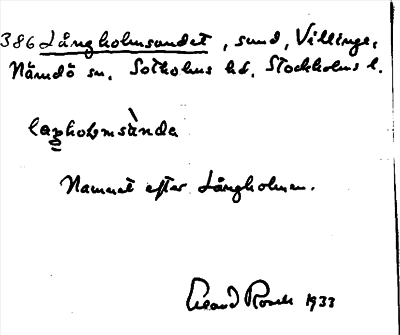 386 Långholmsundet, sund, Villinge,
Nämdö sn. Sotholms hd. Stockholms l.
laŋhoḷmsànda
Namnet efter Långholmen.
Erland Rosell 1933